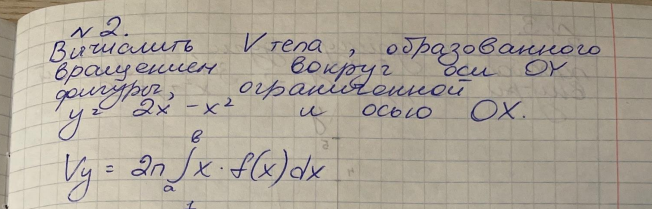 №2.
Вычислить V тела, образованного
вращением вокруг оси OY
фигуры, ограниченной
y = 2x - x² и осью OX.
Vy = 2π∫ₐᵇ x · f(x)dx